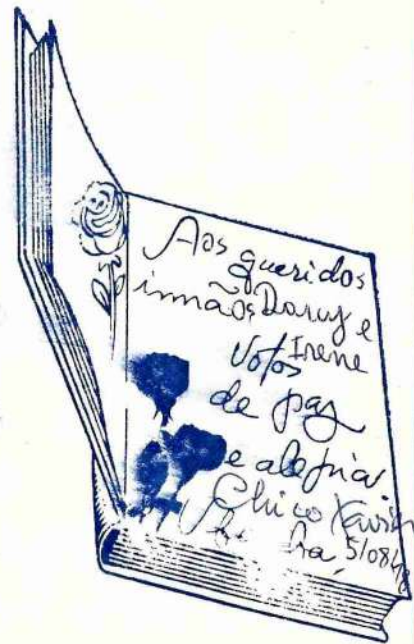 Aos queridos
irmãos Darcy e
Irene
Votos
de paz
e alegria
Chico Xavier